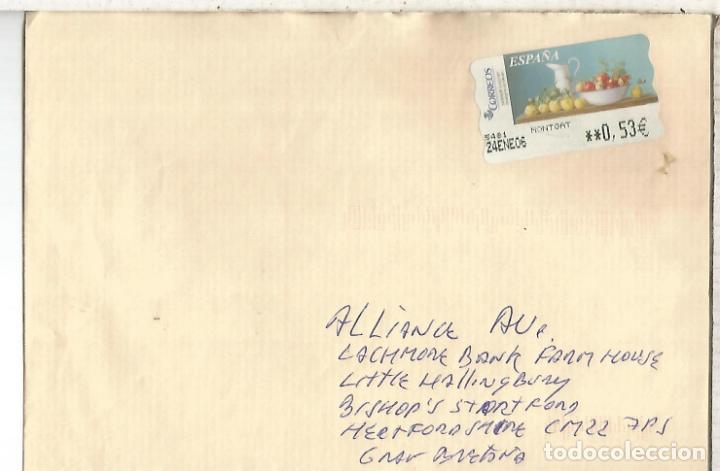 ESPAÑA
CORREOS
5481 MONTGAT
24ENE06 **0,53€
ALLIANCE AU.
LACHMORE BANK FARM HOUSE
LITTLE HALLINGBURY
BISHOP'S STORTFORD
HERTFORDSHIRE CM22 7PS
GRAN BRETAÑA
todocoleccion